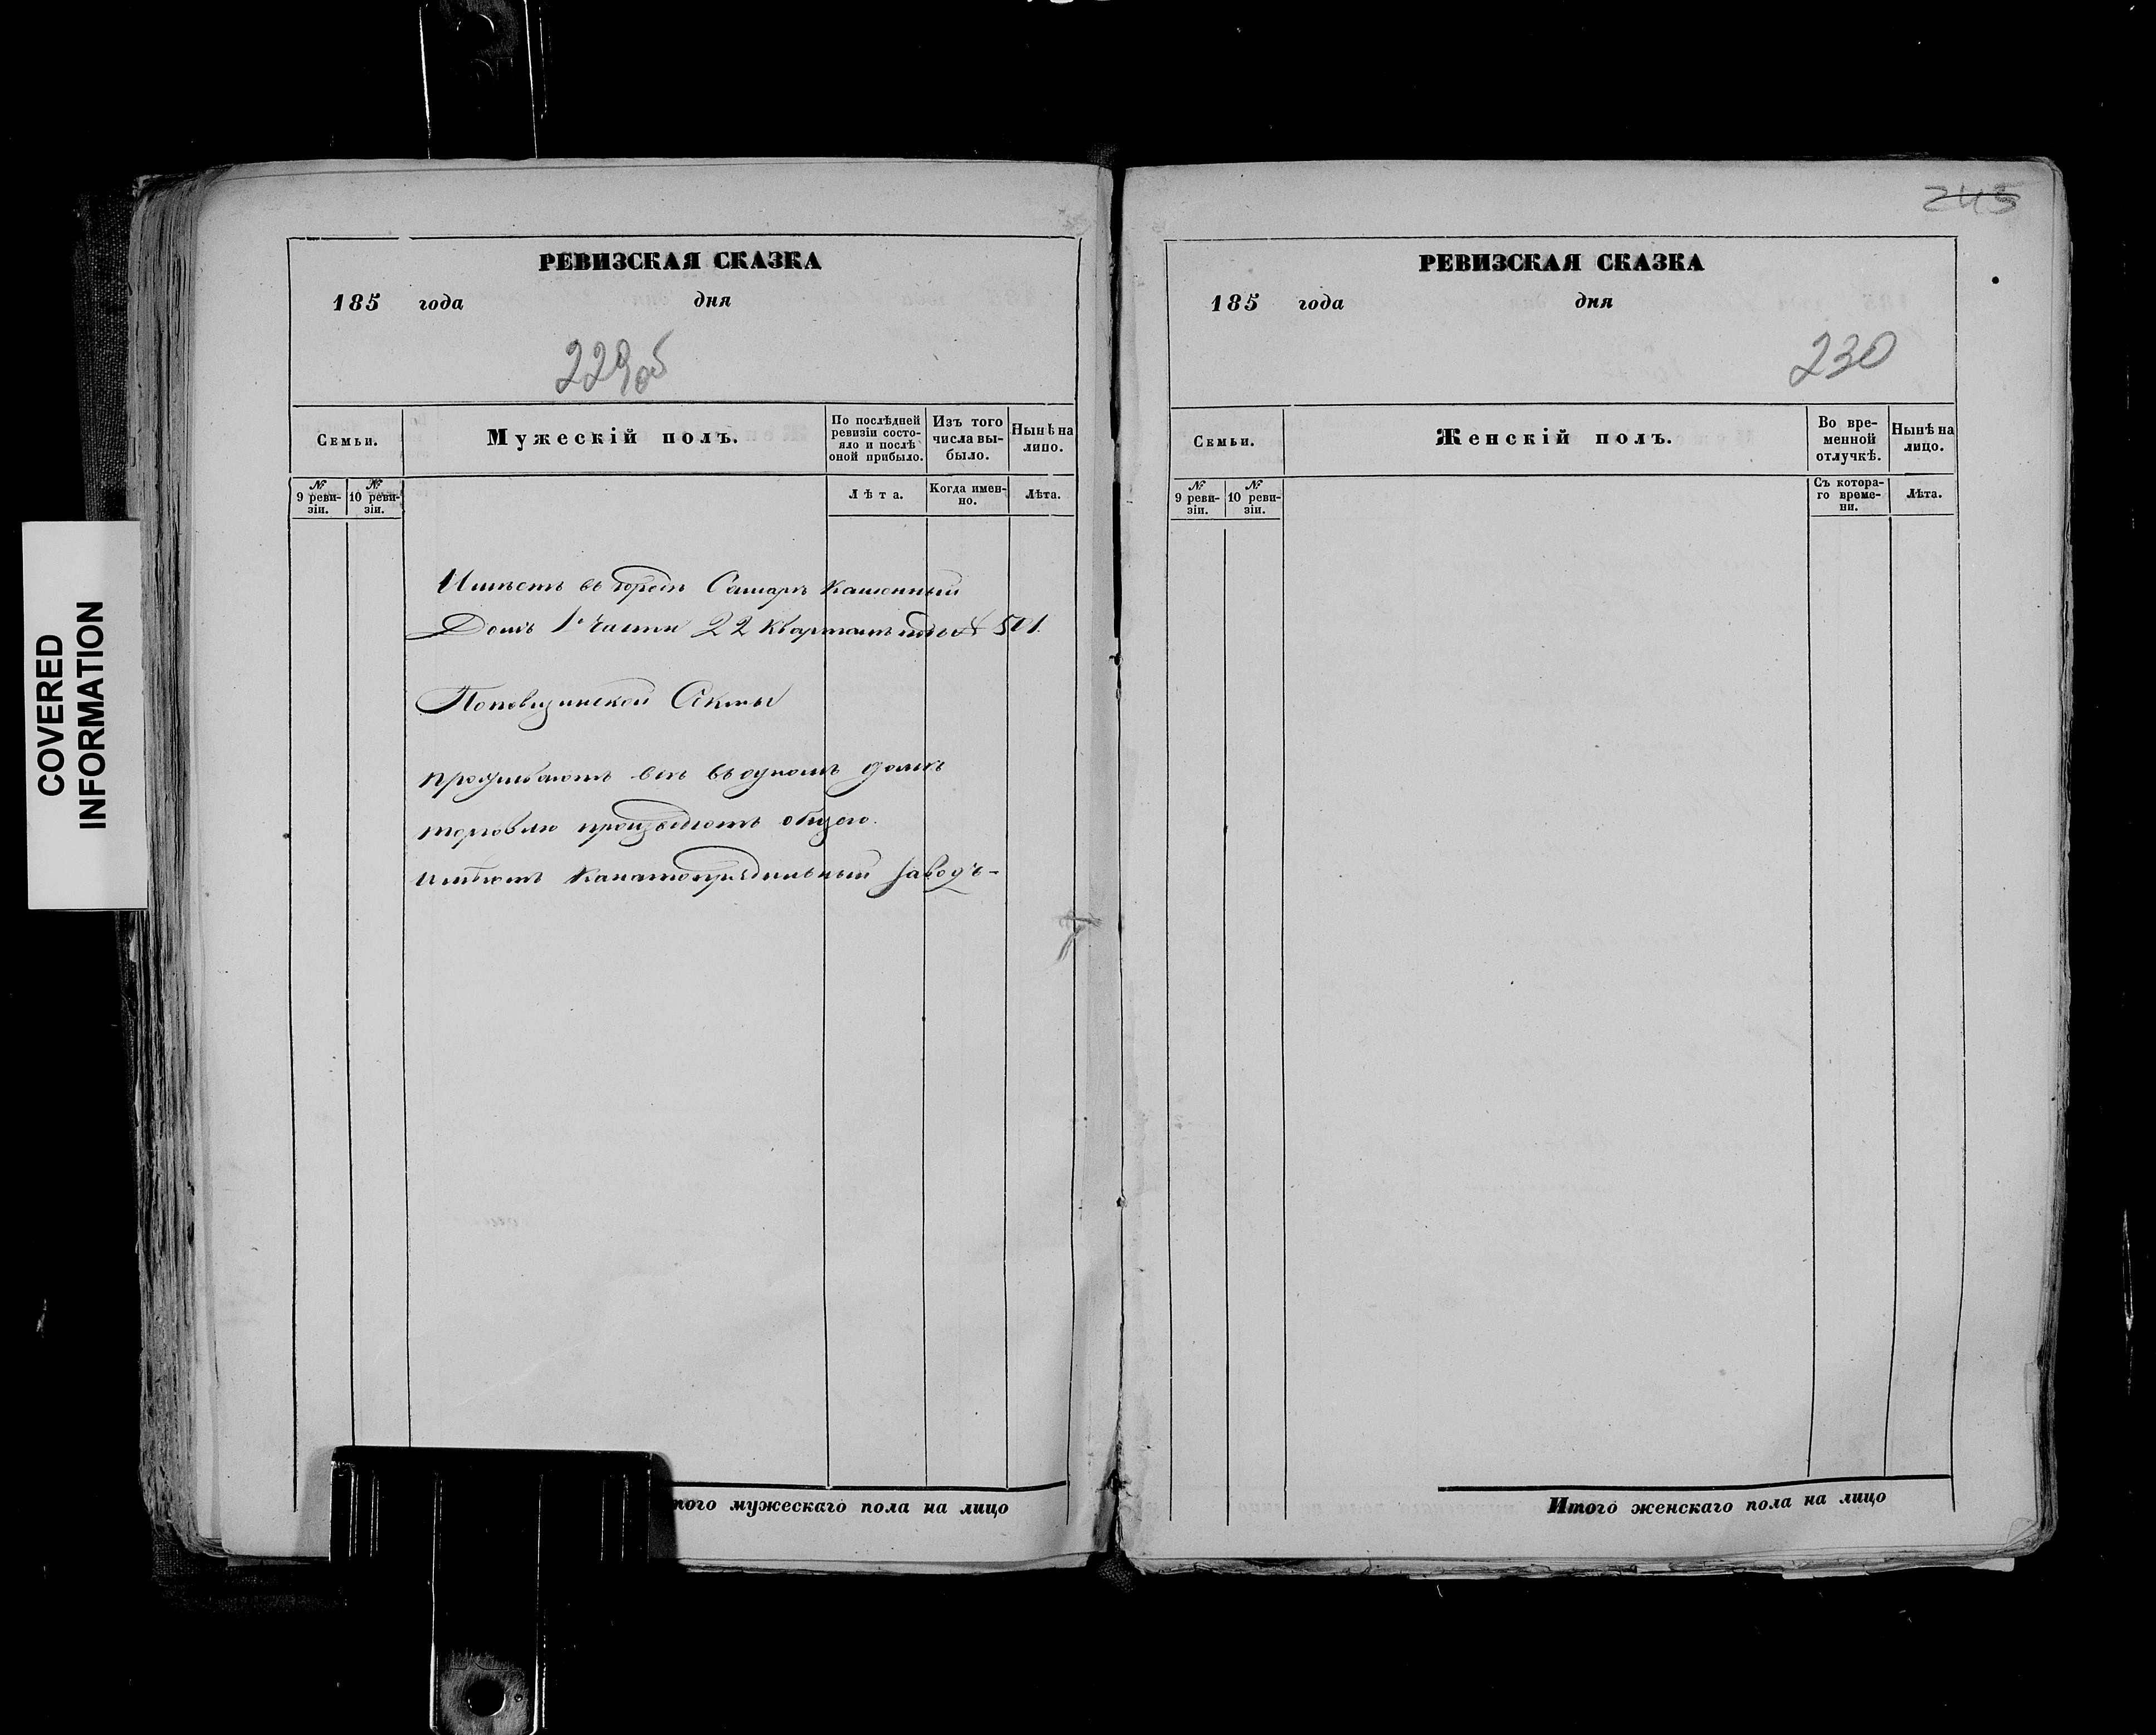 COVERED
INFORMATION
РЕВИЗСКАЯ СКАЗКА
185 года дня
229об
Семьи.
Мужескій полъ.
По послѣдней
ревизіи состо-
яло и послѣ
оной прибыло.
Изъ того
числа вы-
было.
Нынѣ на
лицо.
№
9 реви-
зіи.
№
10 реви-
зіи.
Лѣта.
Когда имен-
но.
Лѣта.
Имѣетъ въ городѣ Самарѣ каменный
Домъ 1й части 22 квартала подъ № 501.
Секты
проживаютъ всѣ въ одномъ домѣ
торговлю производятъ общею.
имѣютъ канатопрядильный заводъ-
того мужескаго пола на лицо
245
РЕВИЗСКАЯ СКАЗКА
185 года дня
230
Семьи.
Женскій полъ.
Во вре-
менной
отлучкѣ.
Нынѣ на
лицо.
№
9 реви-
зіи.
№
10 реви-
зіи.
Съ котора-
го време-
ни.
Лѣта.
Итого женскаго пола на лицо